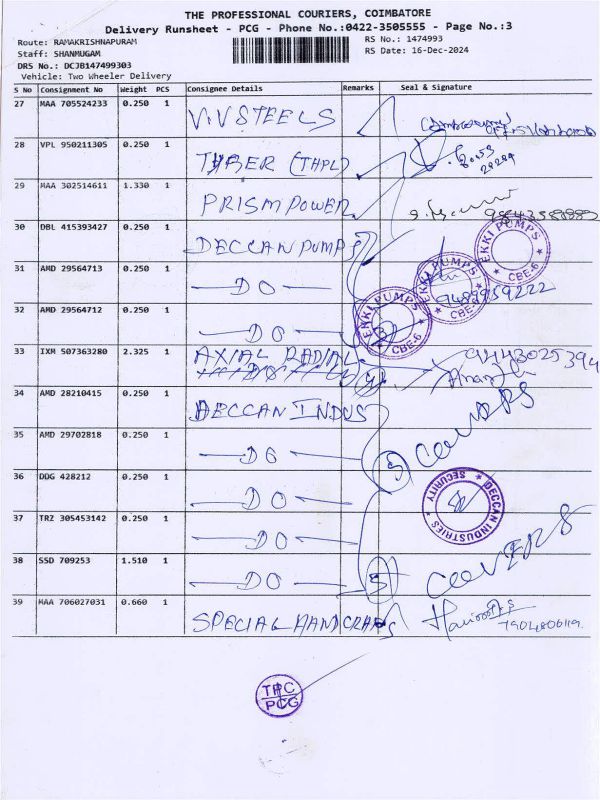 THE PROFESSIONAL COURIERS, COIMBATORE
Delivery Runsheet - PCG - Phone No.:0422-3505555 - Page No.:3
Route: RAMAKRISHNAPURAM RS No.: 1474993
Staff: SHANMUGAM RS Date: 16-Dec-2024
DRS No.: DCJB147499303
Vehicle: Two Wheeler Delivery
S No Consignment No Weight PCS Consignee Details Remarks Seal & Signature
27 MAA 705524233 0.250 1 V.V STEELS
28 VPL 950211305 0.250 1 TIBER (THPL)
29 MAA 302514611 1.330 1 PRISM POWER
30 DBL 415393427 0.250 1 DECCAN PUMPS
EKKI PUMPS CBE-6
31 AMD 29564713 0.250 1 DO
EKKI PUMPS CBE-6
9489959222
32 AMD 29564712 0.250 1 DO
EKKI PUMPS CBE-6
33 IXM 507363280 2.325 1 AXIAL RADIAL 9443025394
34 AMD 28210415 0.250 1 DECCAN INDUS COVERS
35 AMD 29702818 0.250 1 DO 5
36 DDG 428212 0.250 1 DO
DECCAN INDUSTRIES SECURITY
37 TRZ 305453142 0.250 1 DO
38 SSD 709253 1.510 1 DO 5 COVERS
39 MAA 706027031 0.660 1 SPECIAL HANDCRAFS
7904806119
TPC
PCG